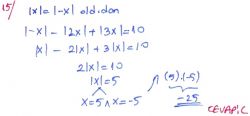 15/ |x| = |-x| old.dan
|-x| - |2x| + |3x| = 10
|x| - 2|x| + 3|x| = 10
2|x| = 10
|x| = 5
x = 5 ∧ x = -5
(5).(-5)
-25
CEVAP: C